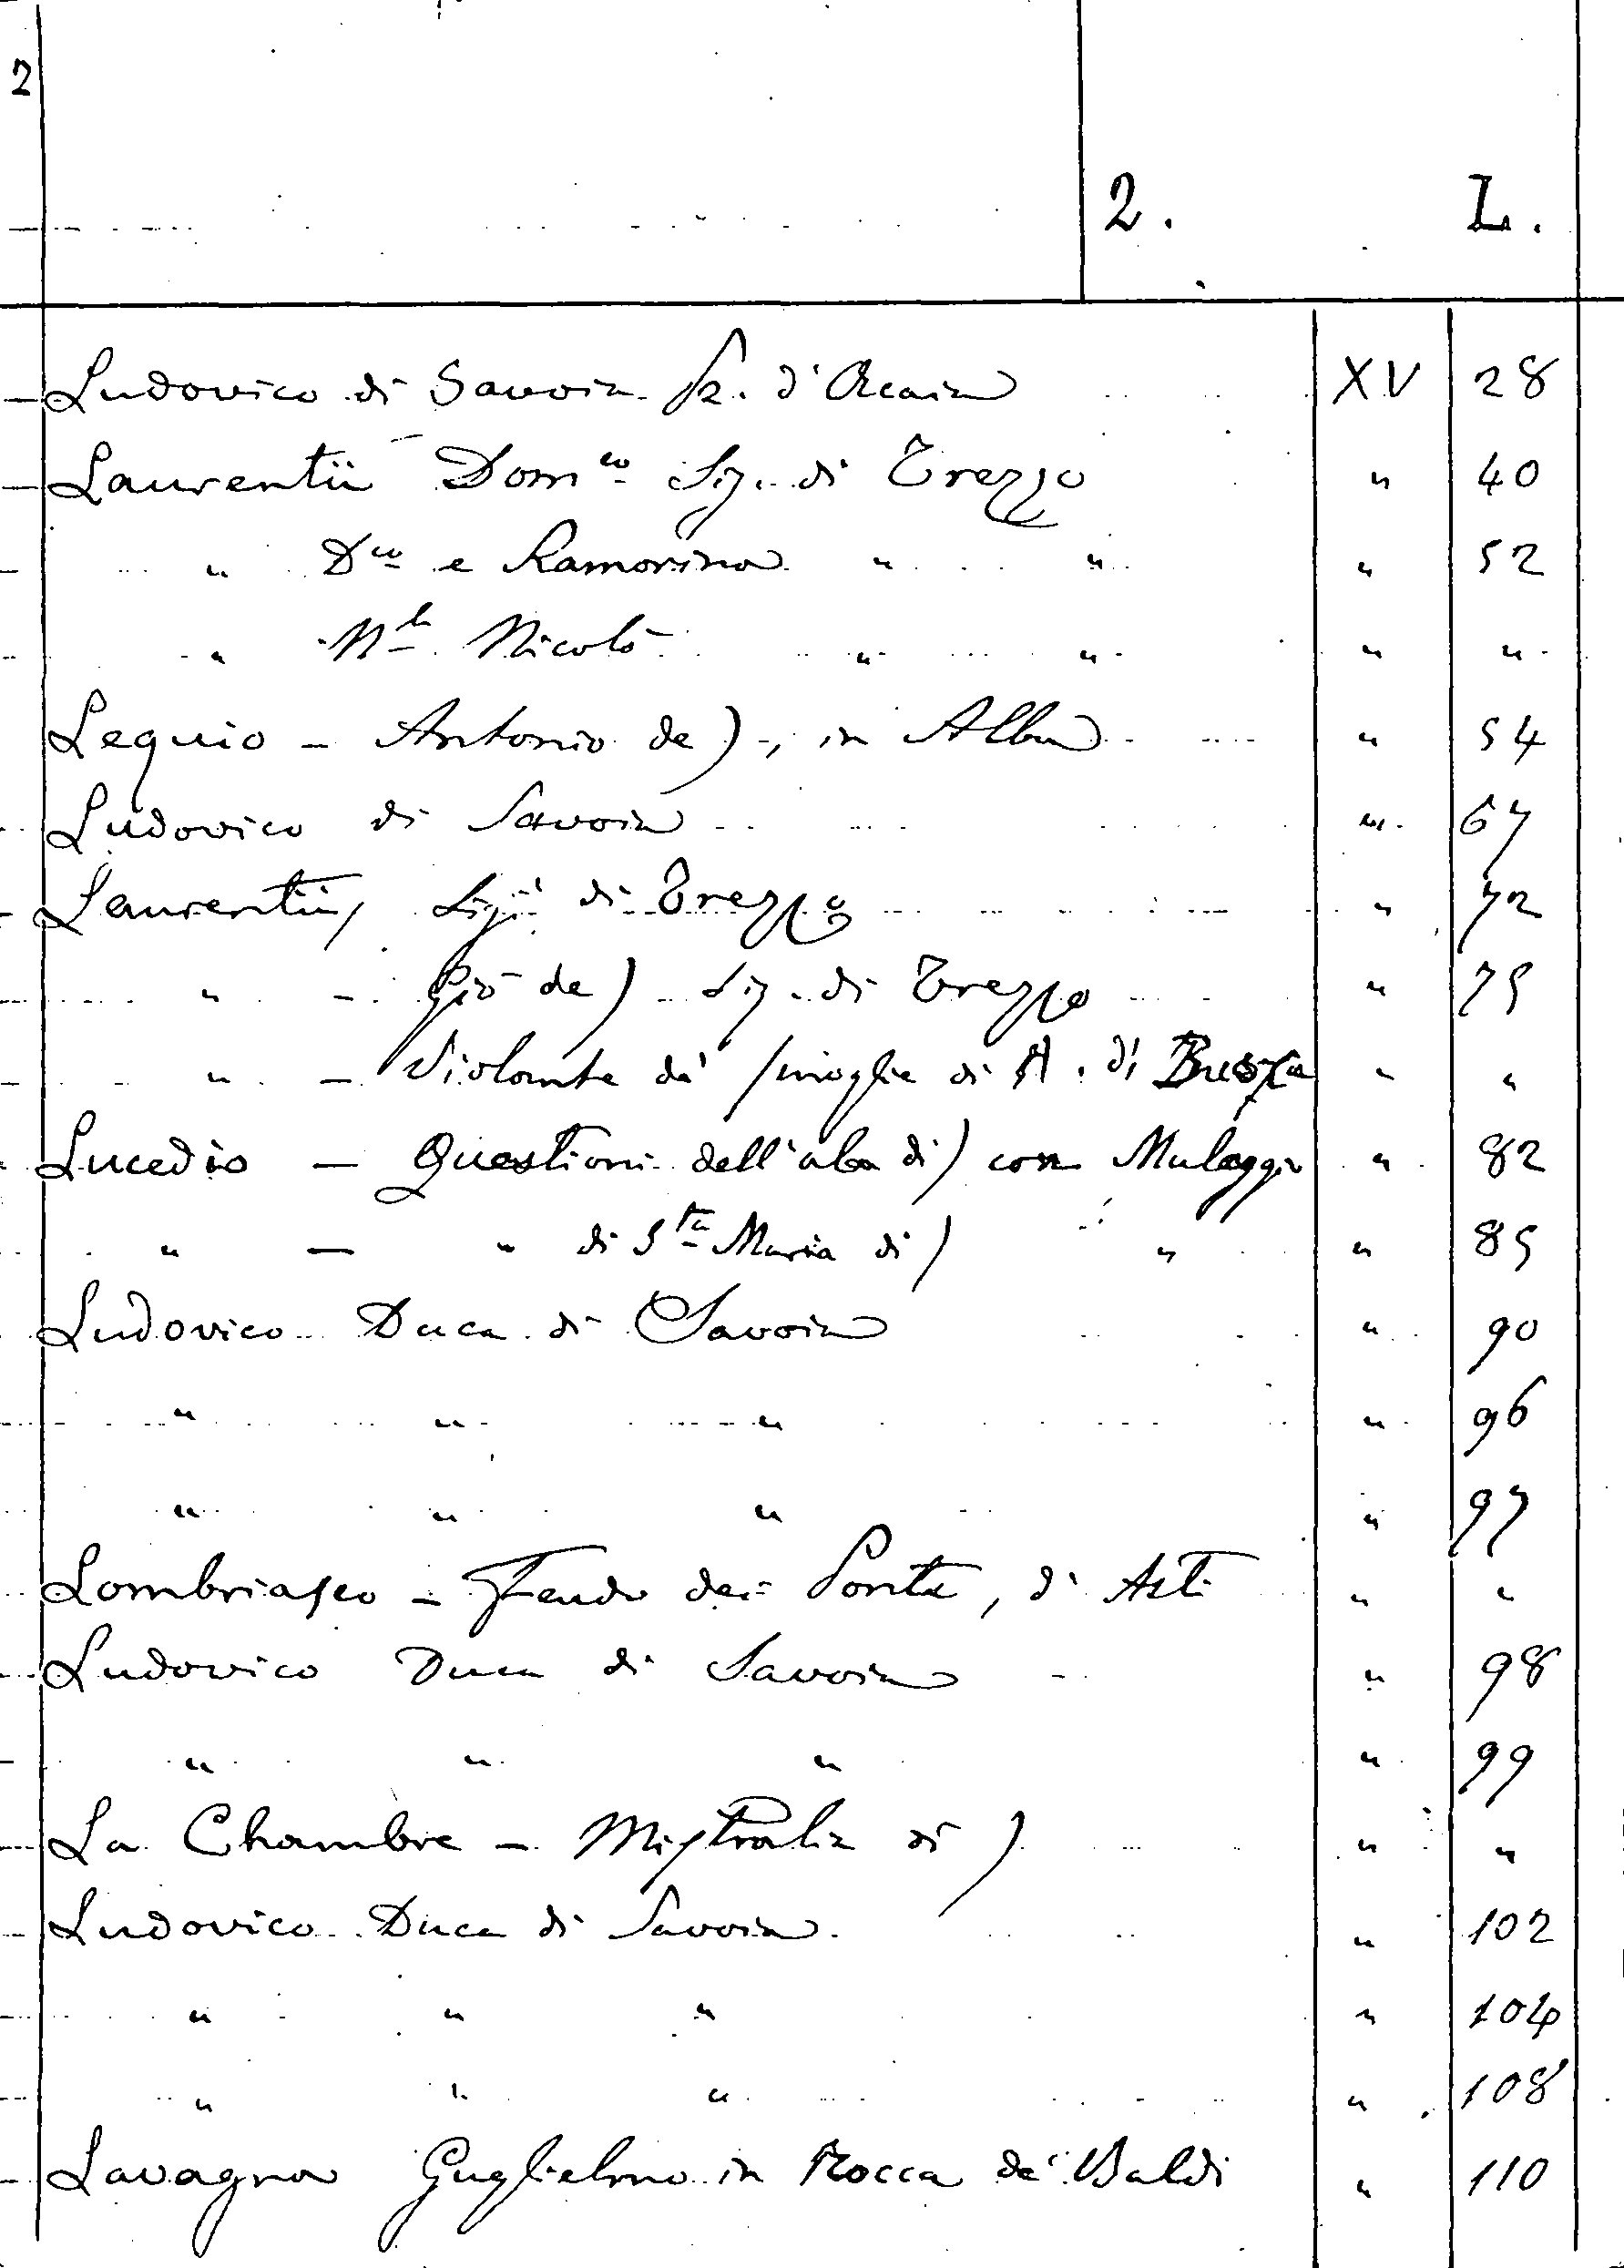 2
2. L.
Ludovico di Savoia Pr. d'Acaia XV 28
Laurentii Dom.co Sig. di Trezzo " 40
" D.co e Ramorino " " " 52
" N.le Nicolò " " " "
Lequio - Antonio de), in Alba " 54
Ludovico di Savoia " 67
Laurentii, Sig.i di Trezzo " 72
" - Giò de) Sig. di Trezzo " 75
" - Violante de' / moglie di A. di Busca " "
Lucedio - Questioni dell'aba di) con Muleggio " 82
" - " di S.ta Maria di) " " 85
Ludovico Duca di Savoia " 90
" " " " 96
" " " " 97
Lombriasco - Feudo dei Ponte, di Asti " "
Ludovico Duca di Savoia " 98
" " " " 99
La Chambre - Mistralia di) " "
Ludovico Duca di Savoia " 102
" " " " 104
" " " " 108
Lavagna Guglielmo in Rocca de' Baldi " 110